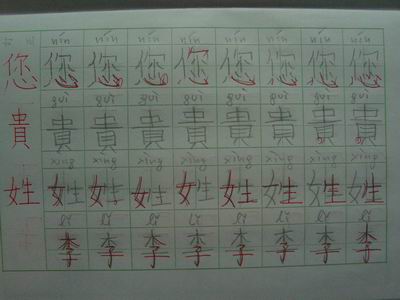 nín nín nín nín nín nín nín nín
您 您 您 您 您 您 您 您 您
guì guì guì guì guì guì guì guì
貴 貴 貴 貴 貴 貴 貴 貴 貴
xìng xìng xìng xìng xìng xìng xìng xìng
姓 姓 姓 姓 姓 姓 姓 姓 姓
lǐ lǐ lǐ lǐ lǐ lǐ lǐ lǐ
李 李 李 李 李 李 李 李